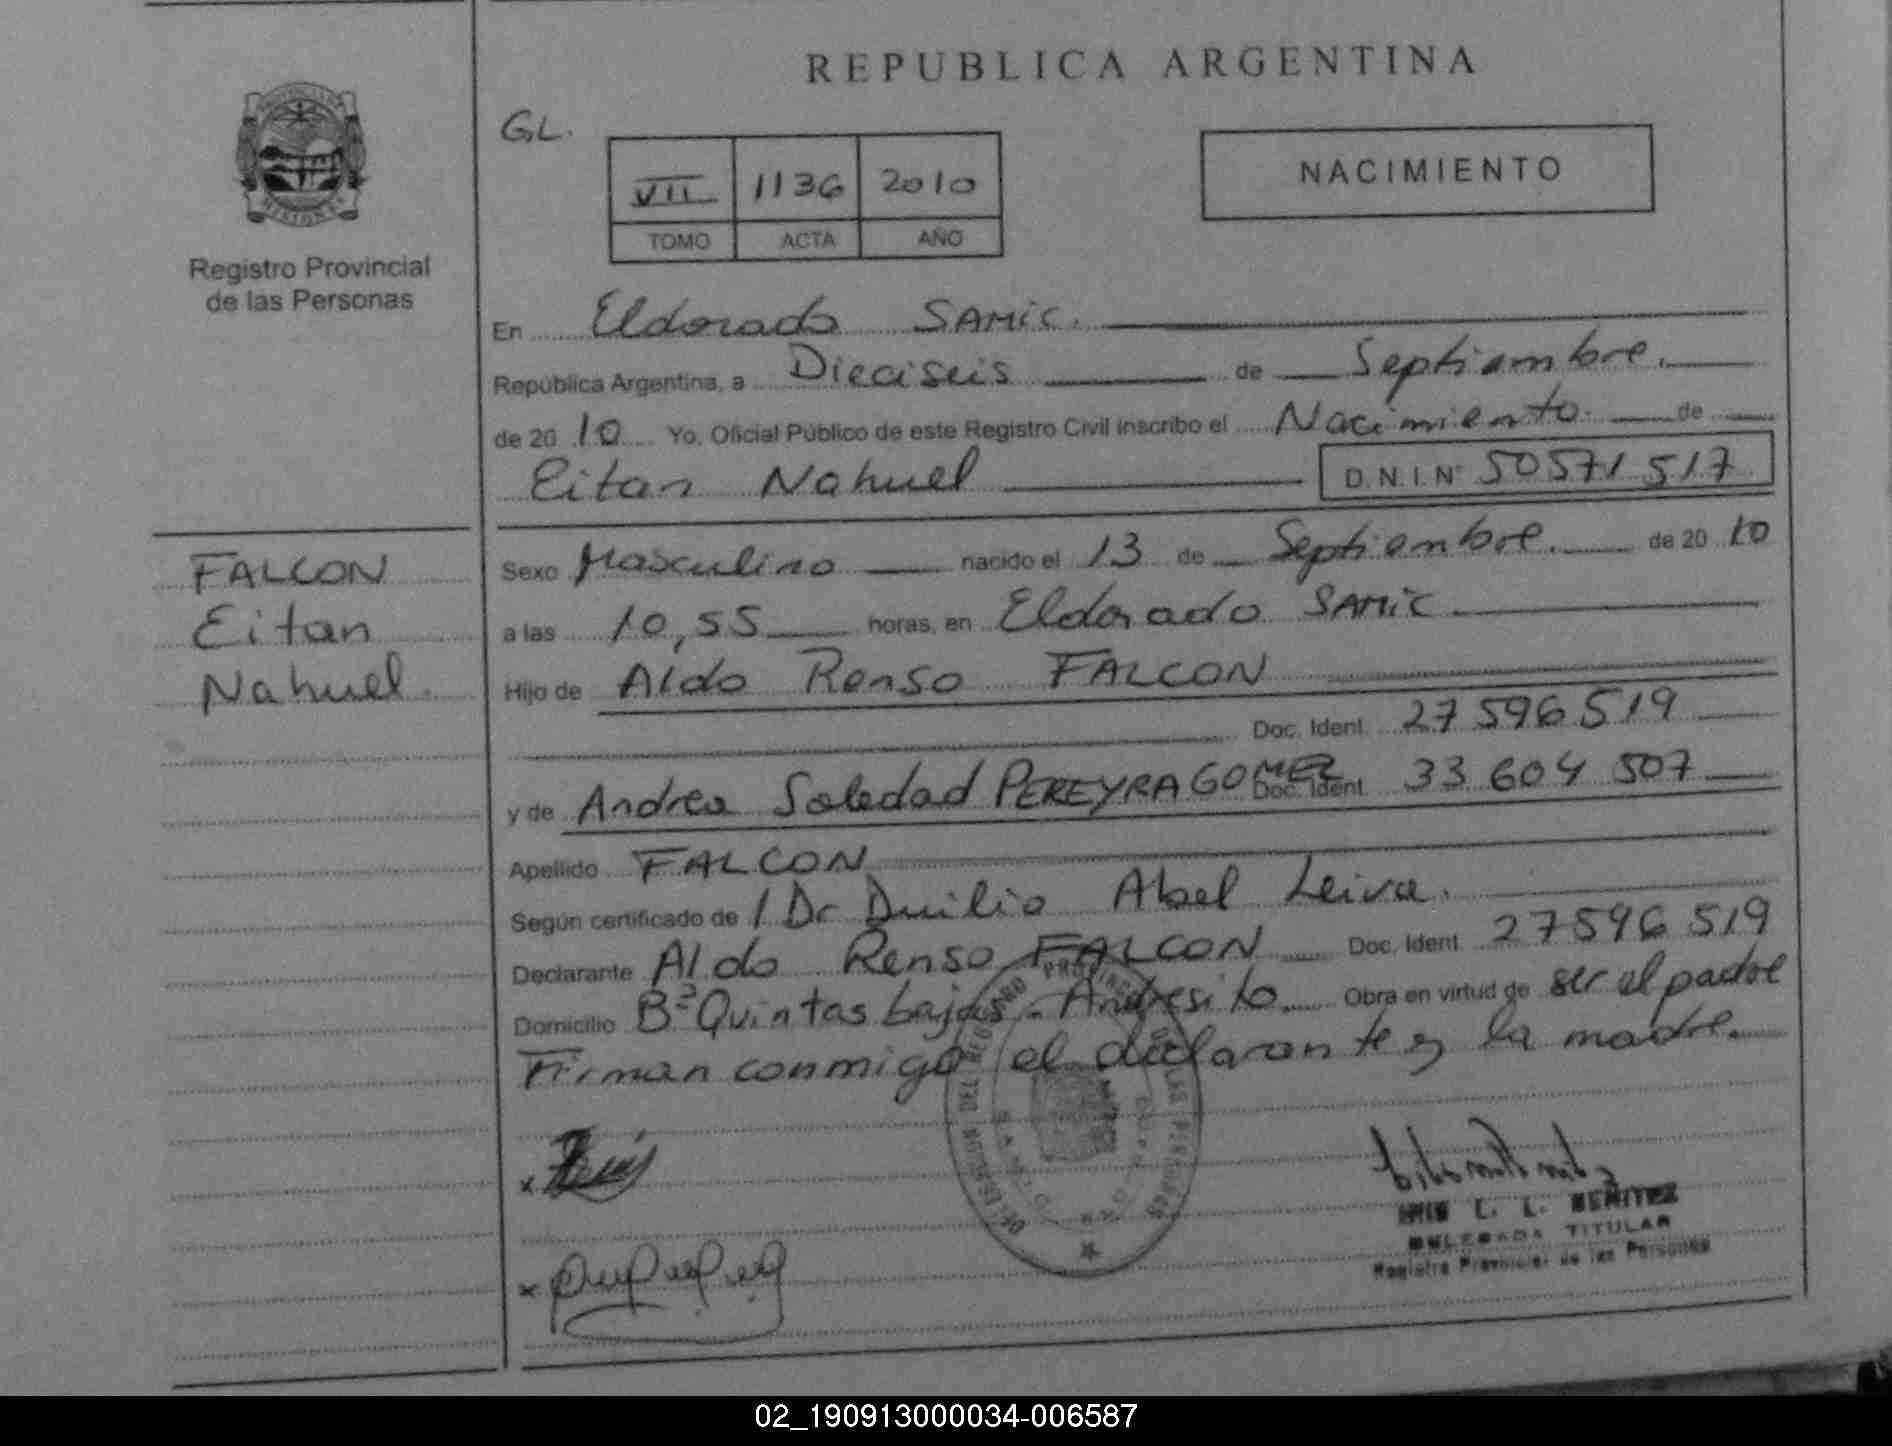 REPUBLICA ARGENTINA
PROVINCIA DE
MISIONES
Registro Provincial
de las Personas
GL.
VII 1136 2010
TOMO ACTA AÑO
NACIMIENTO
En Eldorado SAMIC.
República Argentina, a Dieciseis de Septiembre.
de 20 10 Yo, Oficial Público de este Registro Civil inscribo el Nacimiento de
Eitan Nahuel D.N.I. Nº 50571517
FALCON
Eitan
Nahuel.
Sexo Masculino nacido el 13 de Septiembre. de 20 10
a las 10,55 horas, en Eldorado SAMIC
Hijo de Aldo Renso FALCON
Doc. Ident. 27 596 519
y de Andrea Soledad PEREYRA GOMEZ Doc. Ident. 33 604 507
Apellido FALCON
Según certificado de / Dr Duilio Abel Leiva.
Declarante Aldo Renso FALCON Doc. Ident. 27596519
Domicilio Bº Quintas bajas - Andresito. Obra en virtud de ser el padre
Firman conmigo el declarante y la madre.
x
x
L. L. BENITEZ
DELEGADA TITULAR
Registro Provincial de las Personas
02_190913000034-006587